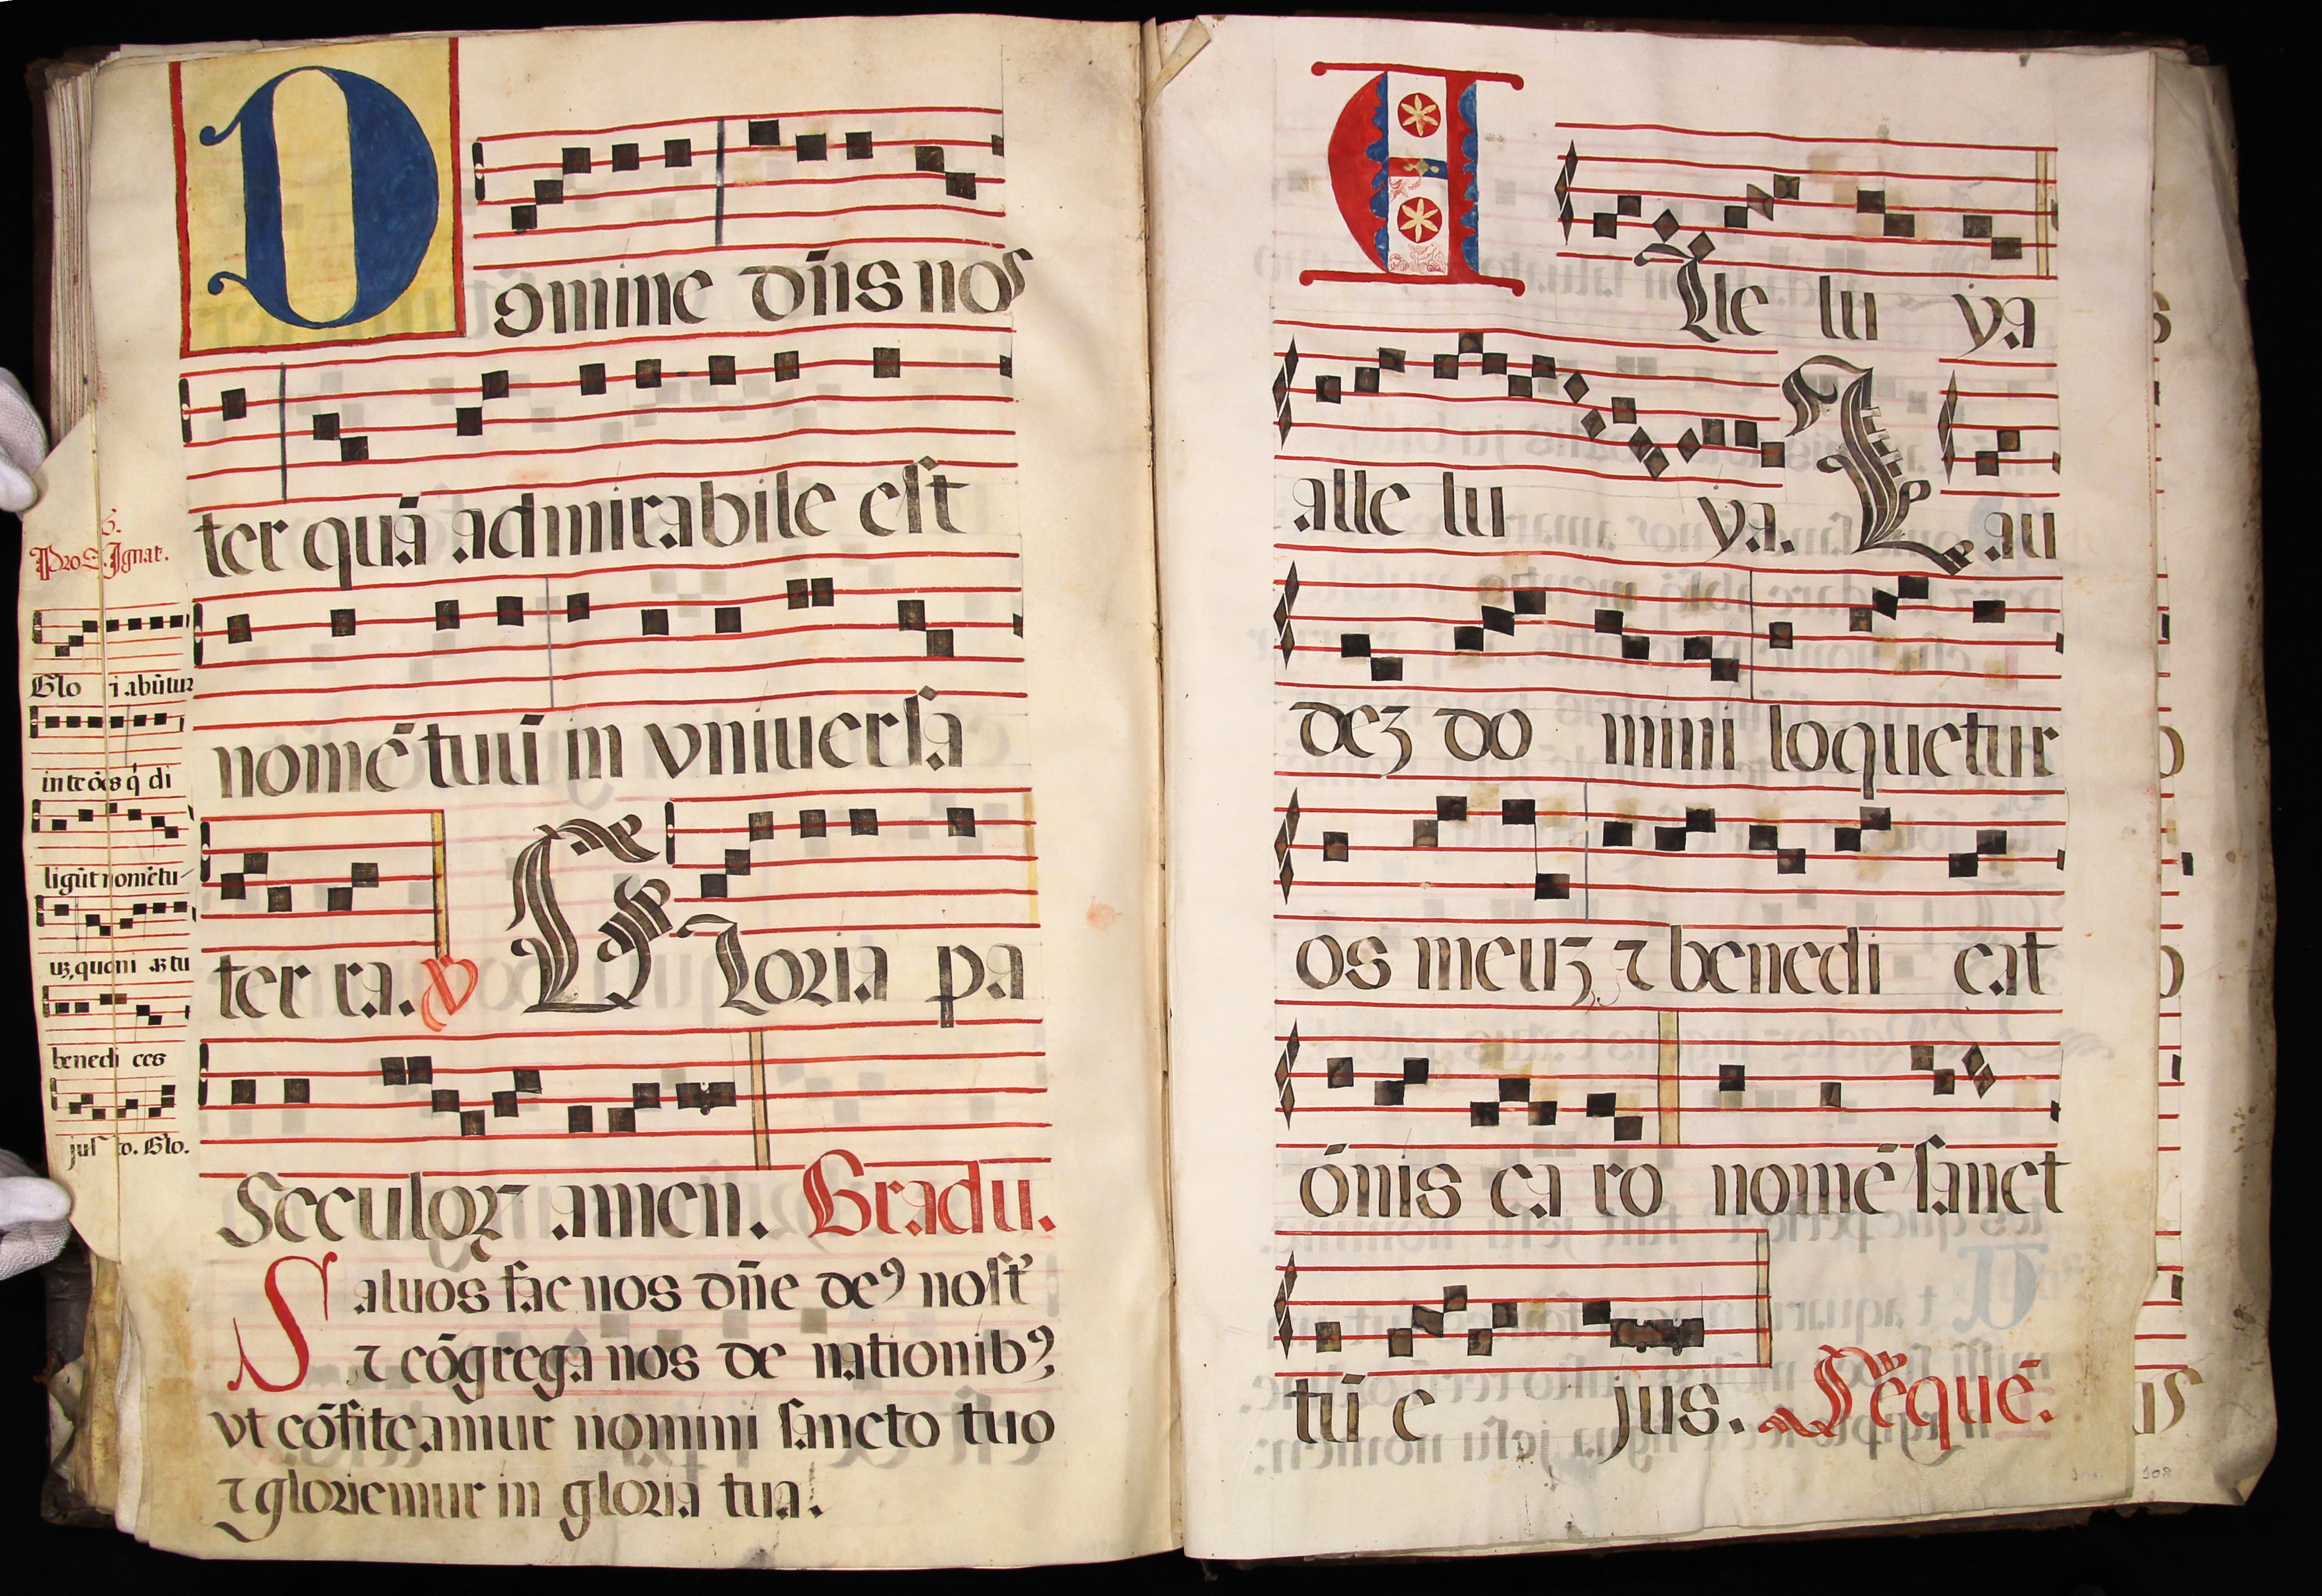 Domine dn̄s nos
ter quā admirabile eſt
nomē tuū in vniuerſa
ter ra. V Gloria pa
Seculoꝝ amen. Gradu.
Saluos fac nos dn̄e deꝰ noſt͛
⁊ cōgrega nos de nationibꝰ
vt cōfiteamur nomini ſancto tuo
⁊ gloriemur in gloria tua.
Pro S Ignat.
Glo i abūtur
in te ōēs q̇ di
ligūt nomē tu-
uꝫ, quoni aꝫ tu
benedi ces
juſ to. Glo.
Alle lu ya
alle lu ya. Lau
deꝫ do mini loquetur
os meuꝫ ⁊ benedi cat
ōnis ca ro nomē ſanct
tū e jus. Seque̅.
108